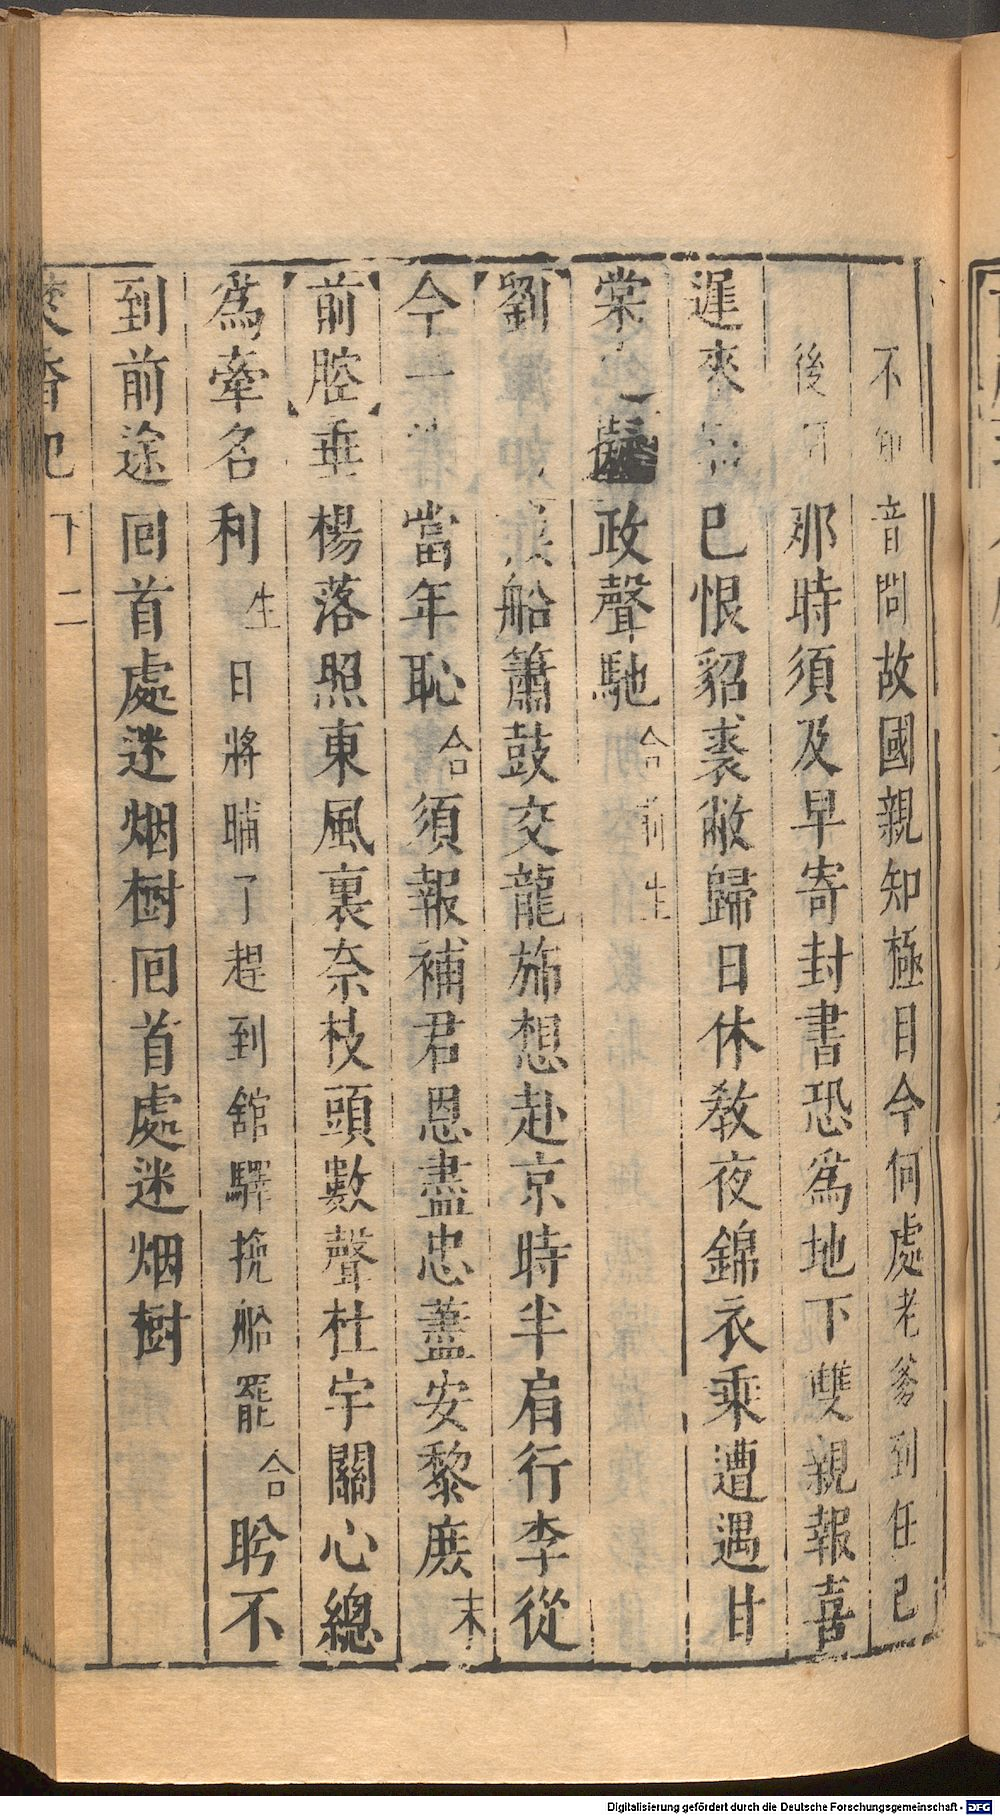 不知音問故國親知極目今何處老爹到任已
後 那時須及早寄封書恐為地下雙親報喜
遲來 已恨貂裘敝歸日休教夜錦衣乘遭遇甘
棠 政聲馳合前生
劉 船簫鼓交龍旆想赴京時半肩行李從
今 當年恥合須報補君恩盡忠藎安黎庶末
前腔垂楊落照東風裏奈枝頭數聲杜宇關心總
為牽名利生日將晡了趕到舘驛挽船罷合盻不
到前途回首處迷烟樹回首處迷烟樹
焚香記 下 二
Digitalisierung gefördert durch die Deutsche Forschungsgemeinschaft - DFG